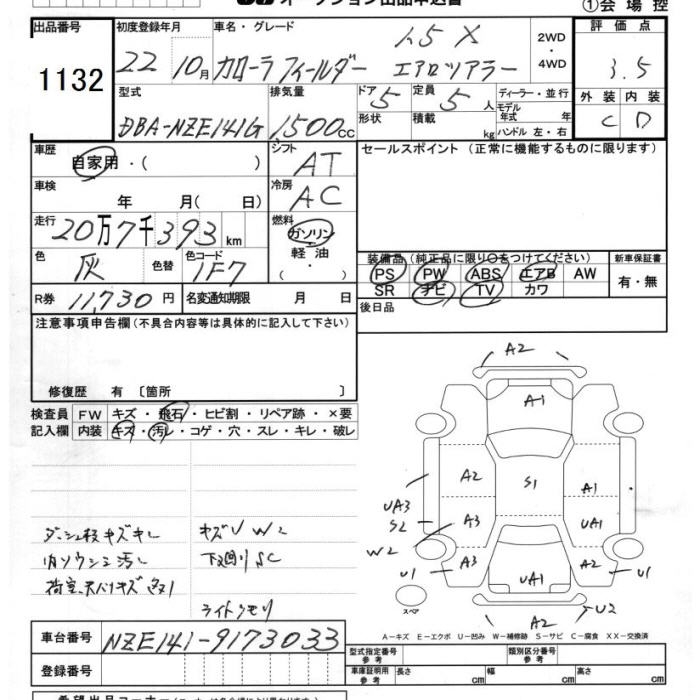 オークション出品申込書
①会場控
出品番号 初度登録年月 車名・グレード 評価点
1132 22 10月 カローラ フィールダー 1.5 X エアロツアラー 2WD ・ 4WD 3.5
型式 排気量 ドア 5 定員 5人 ディーラー・並行 外装 内装
DBA-NZE141G 1500cc 形状 積載 kg モデル年式 年 ハンドル 左・右 C D
車歴 シフト セールスポイント (正常に機能するものに限ります)
自家用・( ) AT
車検 冷房
年 月( 日) AC
走行 燃料
20万7千393km ガソリン
色 色替 色コード 軽油 装備品(純正品に限り○をつけてください) 新車保証書
灰 1F7 ・ PS PW ABS エアB AW 有・無
R券 11,730円 名変通知期限 月 日 SR ナビ TV カワ
注意事項申告欄(不具合内容等は具体的に記入して下さい) 後日品
修復歴 有 〔箇所 〕
検査員 FW キズ・飛石・ヒビ割・リペア跡・×要
記入欄 内装 キズ・汚レ・コゲ・穴・スレ・キレ・破レ
A2
A1
A2 S1 A1
UA3
S2 A3 UA1
W2
U1 A3 UA1 A2 U1
スペア
A2 U2
ダッシュ板キズキレ キズU W2
内ソウシミ汚レ 下廻りSC
ライトクモリ
A-キズ E-エクボ U-凹み W-補修跡 S-サビ C-腐食 XX-交換済
車台番号 NZE141-9173033 型式指定番号 参考 類別区分番号 参考
登録番号 車庫証明用 参考 長さ cm 幅 cm 高さ cm